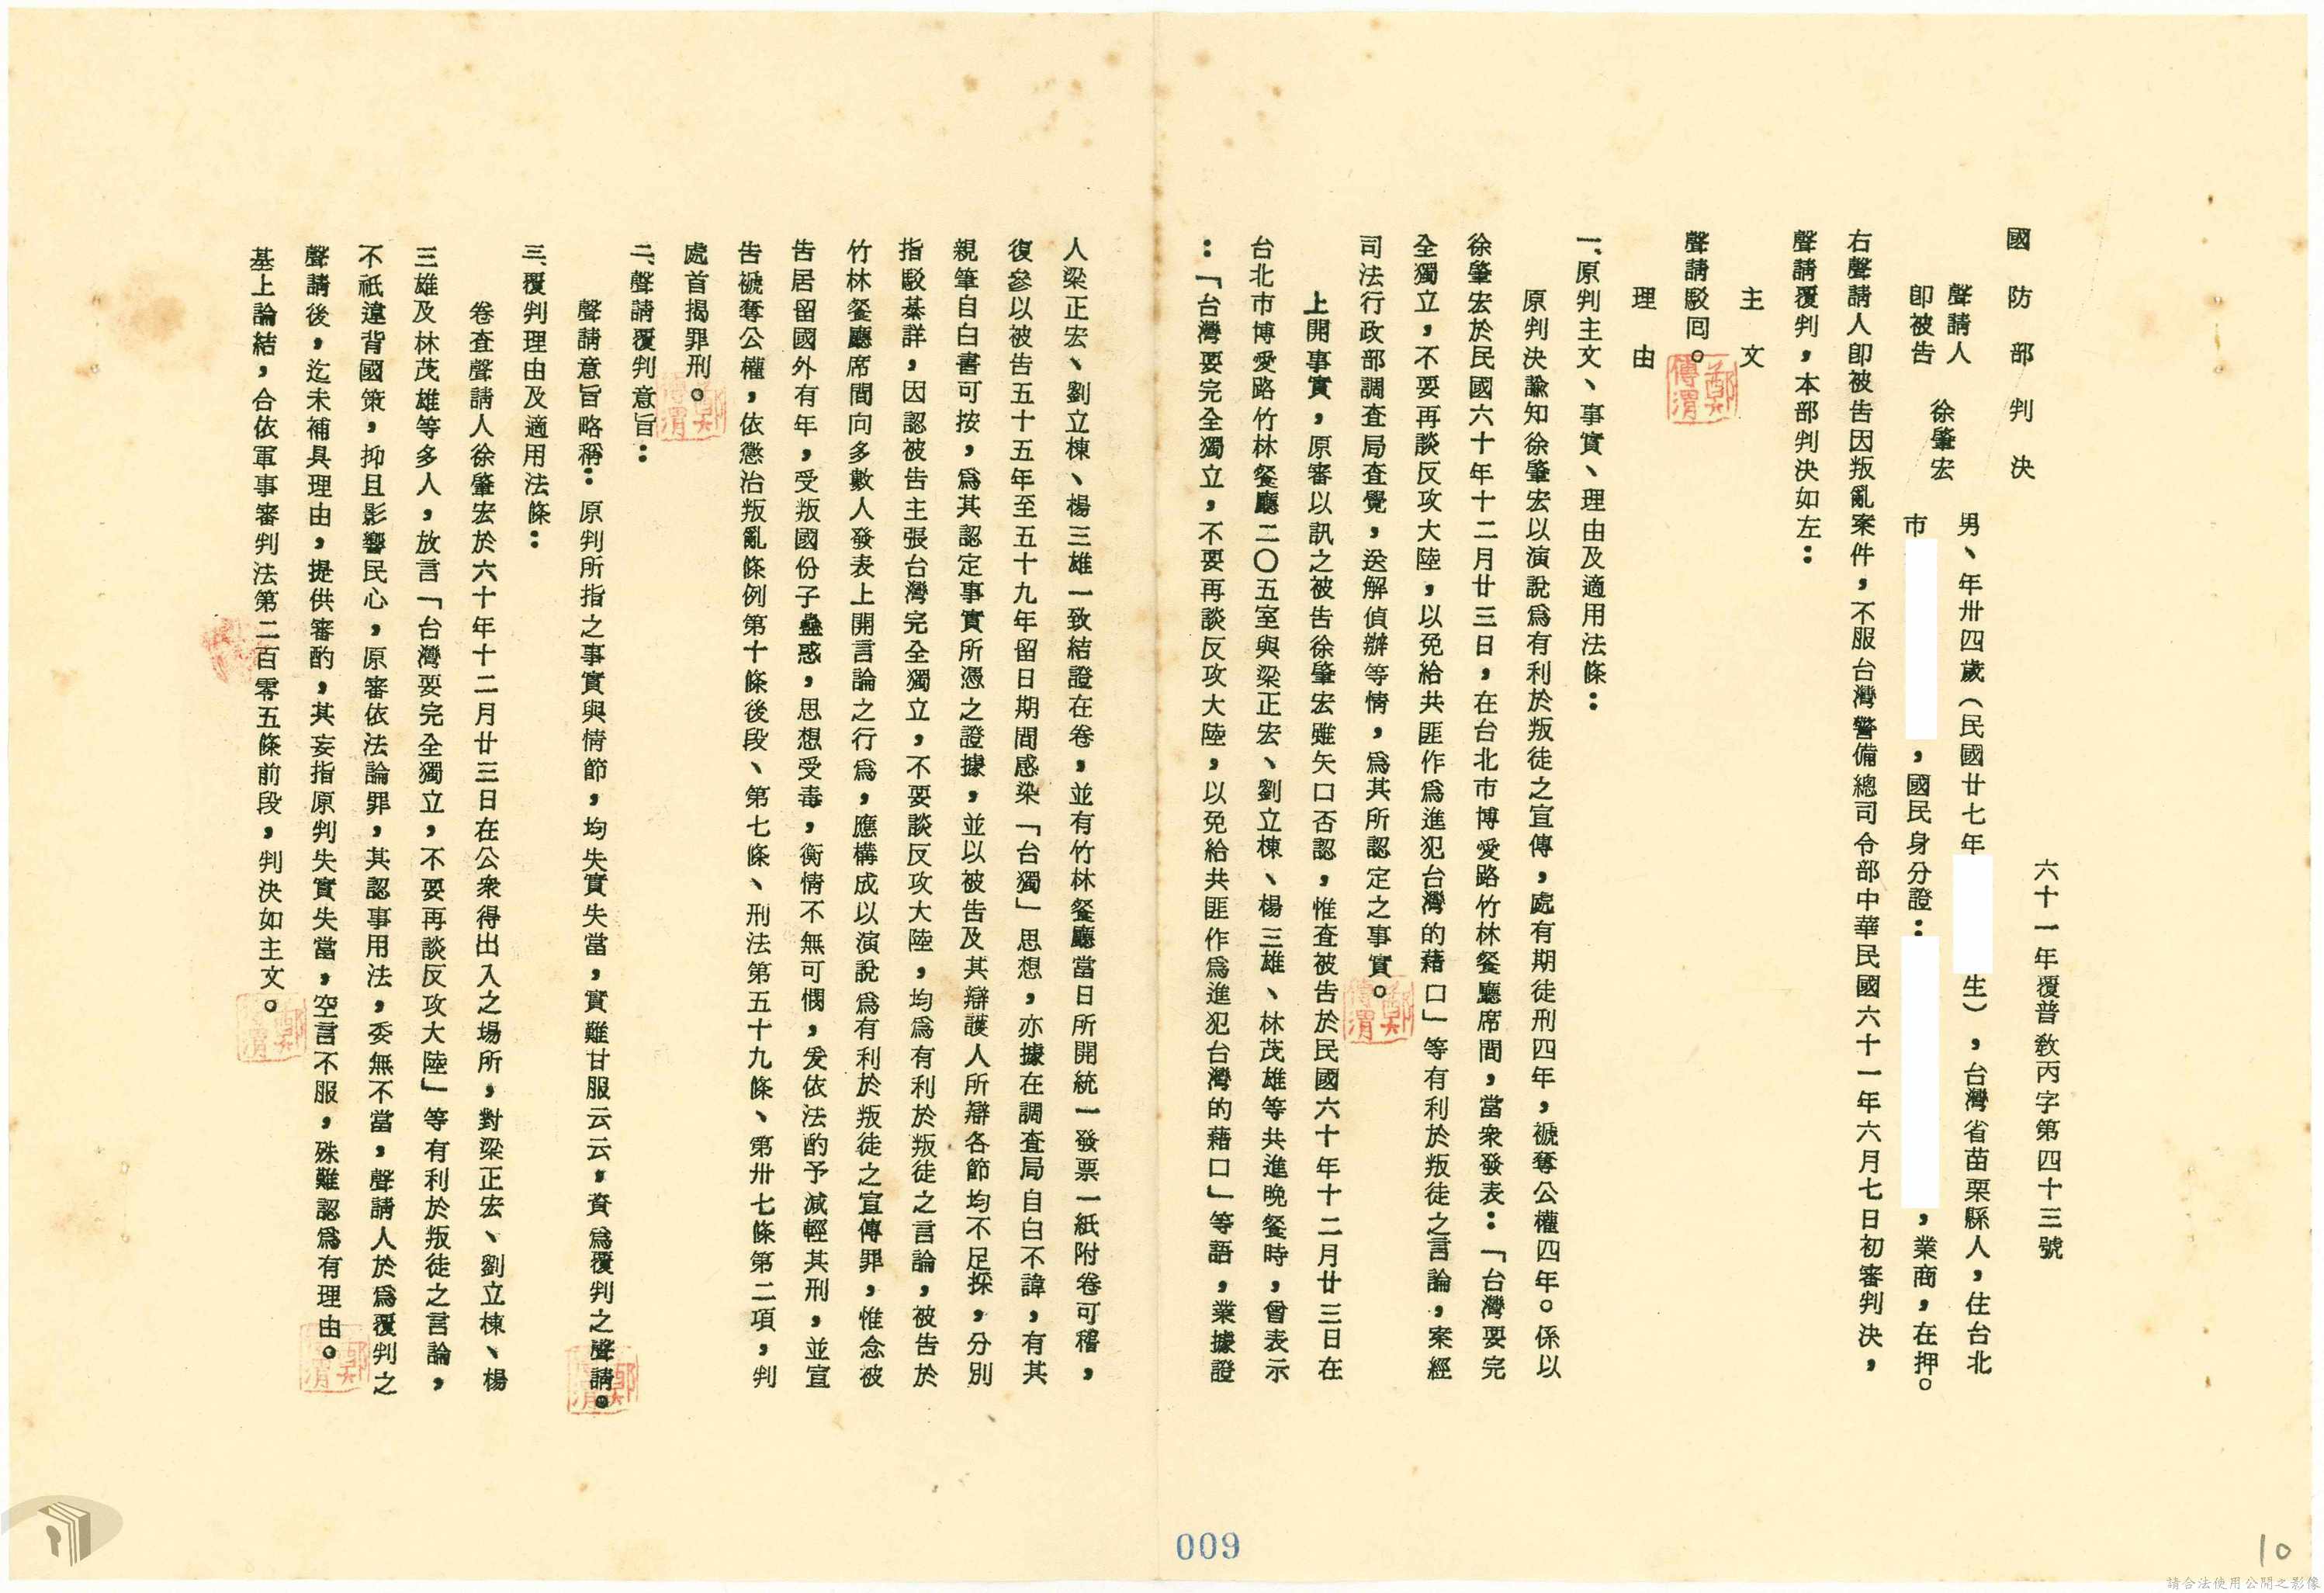 國防部判決
六十一年覆普敎丙字第四十三號
聲請人
即被告
徐肇宏
男、年卅四歲（民國廿七年
生），台灣省苗栗縣人，住台北
市
，國民身分證：
，業商，在押。
右聲請人即被告因叛亂案件，不服台灣警備總司令部中華民國六十一年六月七日初審判決，
聲請覆判，本部判決如左：
主文
聲請駁囘。
理由
一、原判主文、事實、理由及適用法條：
原判決諭知徐肇宏以演說爲有利於叛徒之宣傳，處有期徒刑四年，褫奪公權四年。係以
徐肇宏於民國六十年十二月廿三日，在台北市博愛路竹林餐廳席間，當衆發表：「台灣要完
全獨立，不要再談反攻大陸，以免給共匪作爲進犯台灣的藉口」等有利於叛徒之言論，案經
司法行政部調查局查覺，送解偵辦等情，爲其所認定之事實。
上開事實，原審以訊之被告徐肇宏雖矢口否認，惟查被告於民國六十年十二月廿三日在
台北市博愛路竹林餐廳二〇五室與梁正宏、劉立棟、楊三雄、林茂雄等共進晚餐時，曾表示
：「台灣要完全獨立，不要再談反攻大陸，以免給共匪作爲進犯台灣的藉口」等語，業據證
人梁正宏、劉立棟、楊三雄一致結證在卷，並有竹林餐廳當日所開統一發票一紙附卷可稽，
復參以被告五十五年至五十九年留日期間感染「台獨」思想，亦據在調查局自白不諱，有其
親筆自白書可按，爲其認定事實所憑之證據，並以被告及其辯護人所辯各節均不足採，分別
指駁綦詳，因認被告主張台灣完全獨立，不要談反攻大陸，均爲有利於叛徒之言論，被告於
竹林餐廳席間向多數人發表上開言論之行爲，應構成以演說爲有利於叛徒之宣傳罪，惟念被
告居留國外有年，受叛國份子蠱惑，思想受毒，衡情不無可憫，爰依法酌予減輕其刑，並宣
告褫奪公權，依懲治叛亂條例第十條後段、第七條、刑法第五十九條、第卅七條第二項，判
處首揭罪刑。
二、聲請覆判意旨：
聲請意旨略稱：原判所指之事實與情節，均失實失當，實難甘服云云，資爲覆判之聲請。
三、覆判理由及適用法條：
卷查聲請人徐肇宏於六十年十二月廿三日在公衆得出入之場所，對梁正宏、劉立棟、楊
三雄及林茂雄等多人，放言「台灣要完全獨立，不要再談反攻大陸」等有利於叛徒之言論，
不祇違背國策，抑且影響民心，原審依法論罪，其認事用法，委無不當，聲請人於爲覆判之
聲請後，迄未補具理由，提供審酌，其妄指原判失實失當，空言不服，殊難認爲有理由。
基上論結，合依軍事審判法第二百零五條前段，判決如主文。
009
10
請合法使用公開之影像